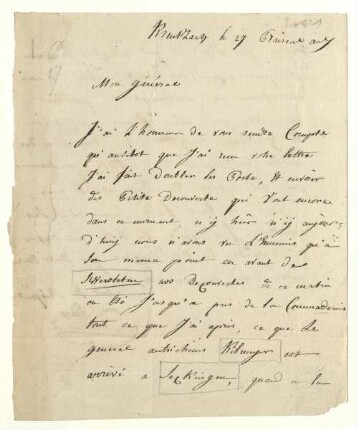 le 29 an 7
Mon général
J'ai L'honneur de vous rendre Compte
qu'aussitot que J'ai reçu votre lettre
J'ai fait doubler les Poste, et envoier
des Petite Decouverte qui Vont encore
dans ce moment n'y hier n'y aujour
d'huy nous n'avons vu L'Ennemis qu'à
Son meme point en avant de
nos Decouvertes de ce matin
on été J'usqu'a pres de la Commanderie
tout ce que J'ai apris, ce que Le
general autrichiens est
arrivé a Seckingen, quand a la